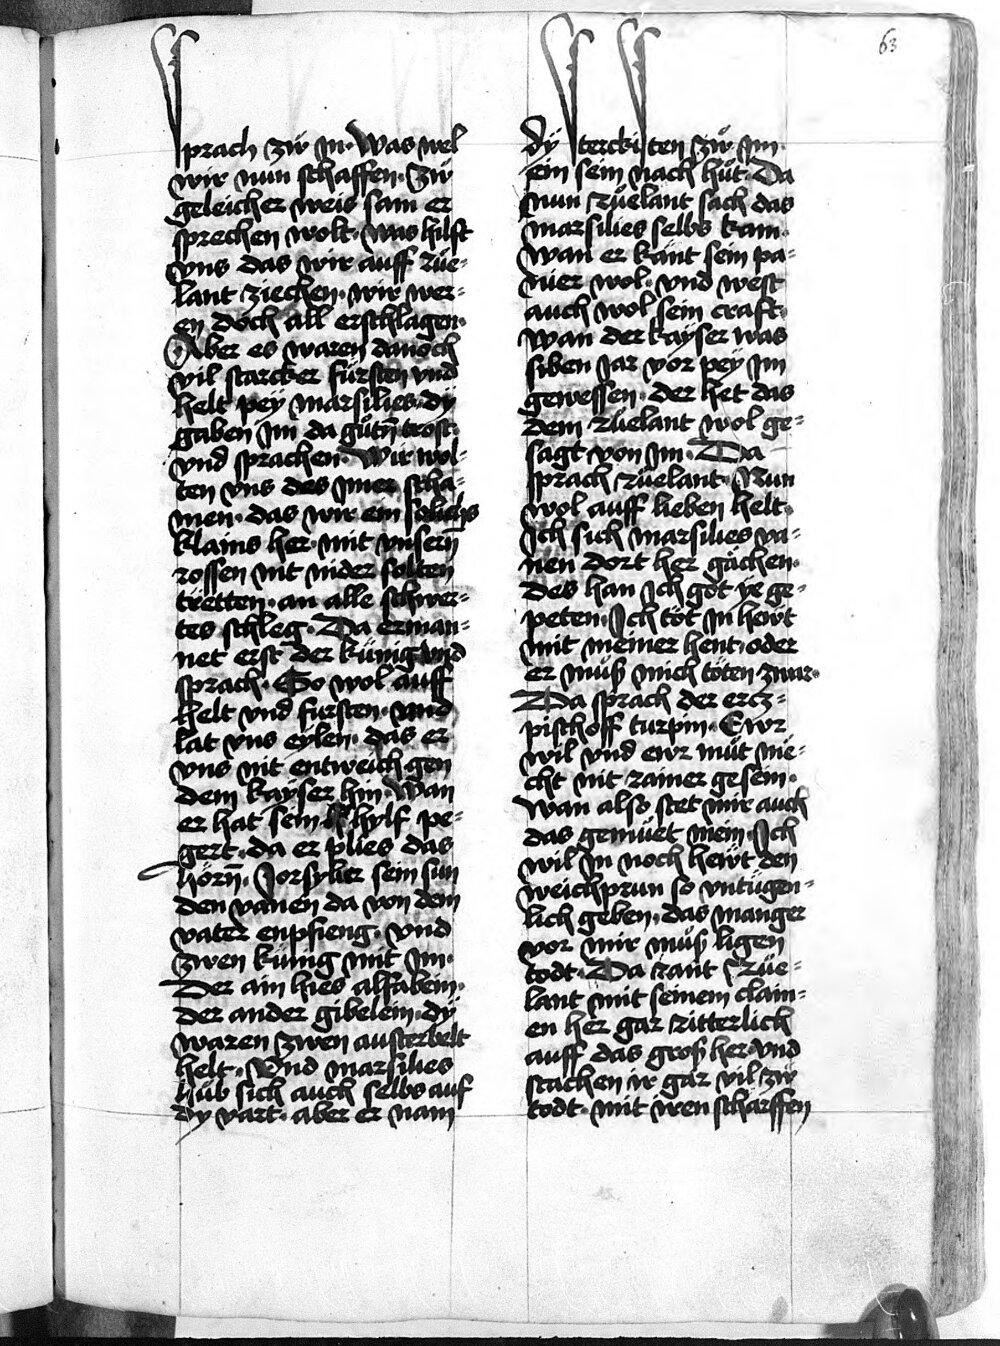 63
sprach zů in. Was wel
wir nun schaffen. Zů
geleicher weis sam er
sprechen wolt. was hilft
vns das wir auff rüe=
lant ziechen. wir wer=
en doch all erschlagen.
Aber es waren danoch
vil starcker fürsten vnd
helt pey marsilies. dÿ
gaben Im da gůtñ trost.
vnd sprachen. Wir wol=
ten vns des Imer scha=
men. das wir ein solichs
klains her. mit vnserñ
rossen nit nider solten
tretten. an alle schwer=
tes schleg. Da erman=
net erst der künig vnd
sprach. So wol auff
helt vnd fürsten. vnd
lat vns eylen. das er
vns nit entweich gen
dem kayser hin. Wan
er hat sein hylf pe=
gert. da er plies das
hörñ. Jorsylier sein sun
den vanen da von dem
vater enpfieng. vnd
zwen künig mit Im.
Der ain hies alfabein.
der ander gibelein. dÿ
waren zwen austerbelt
helt. Vnd marsilies
hůb sich auch selbs auf
dy vart. aber er nam
dÿ sterckisten zů Im.
ein sein nach hůt. Da
nun Rüelant sach das
marsilies selbs kam.
wan er känt sein pa=
nier wol. vnd west
auch wol sein craft.
wan der kayser was
siben Jar vor peÿ Im
gewessen. der het das
dem Rüelant wol ge=
sagt von Im. Da
sprach Rüelant. Nun
wol auff lieben helt.
Ich sich marsilies va=
nen dort her gächen.
des han Ich got ye ge=
peten. Ich töt In hewt
mit meiner hent. oder
er můß mich töten zwar.
Da sprach der ercz=
pischoff turpin. Ewr
wil vnd ewr můt mö=
cht nit rainer gesein.
Wan also stet mir auch
das gemüet mein. Ich
wil In noch hewt den
weichprun so vntugen=
lich geben. das manger
vor mir můß ligen
todt. Da rant Rüe=
lant mit seinem clain=
en her gar ritterlich
auff das groß her. vnd
stachen ir gar vil zů
todt. mit iren scharffen